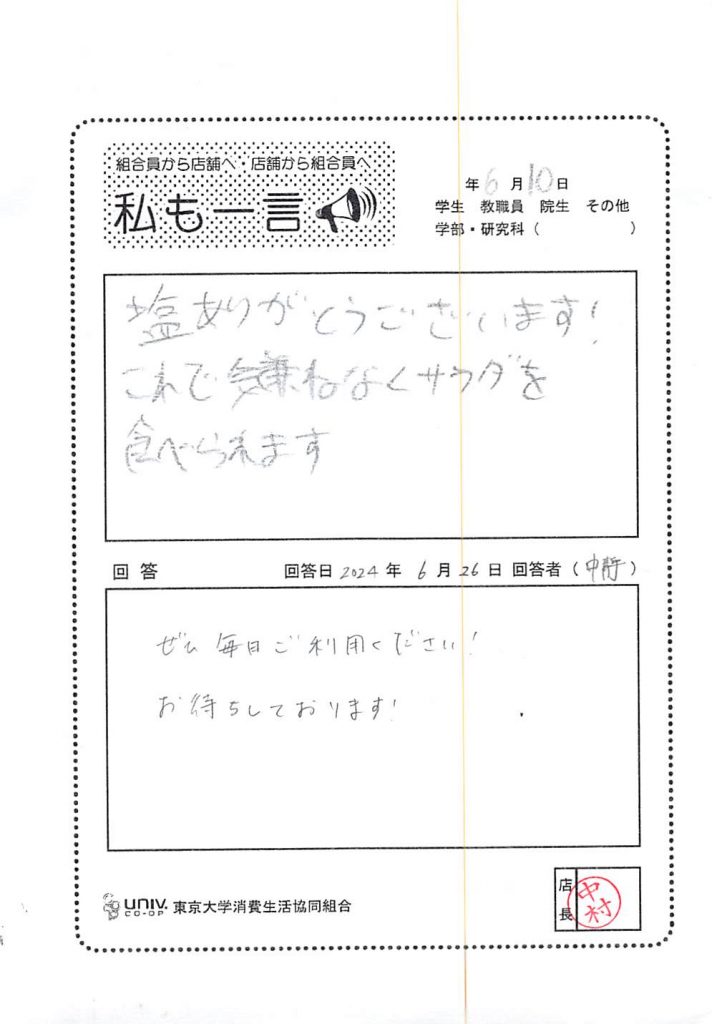 組合員から店舗へ・店舗から組合員へ
私も一言
年 6 月 10 日
学生 教職員 院生 その他
学部・研究科( )
塩ありがとうございます!
これで気兼ねなくサラダを
食べられます
回答 回答日 2024 年 6 月 26 日 回答者 ( )
ぜひ毎日ご利用ください!
お待ちしております!
UNIV. CO-OP 東京大学消費生活協同組合
店長 中村